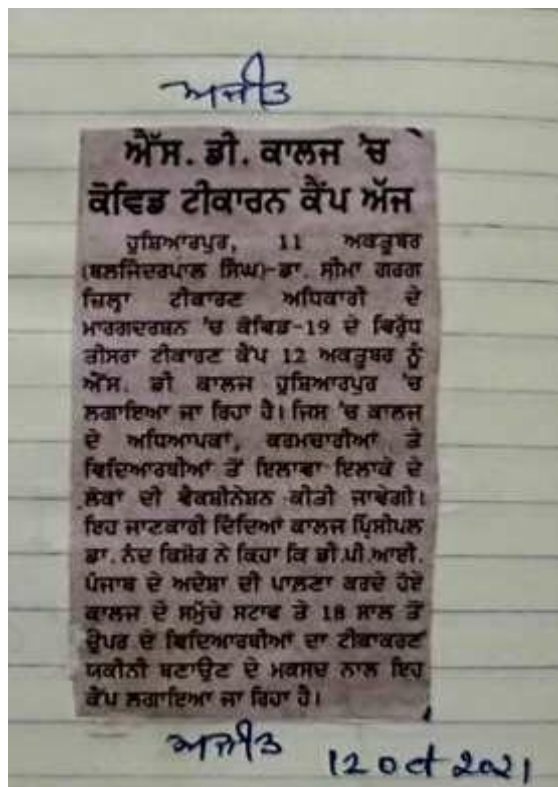 ਅਜੀਤ
ਐੱਸ. ਡੀ. ਕਾਲਜ 'ਚ
ਕੋਵਿਡ ਟੀਕਾਰਨ ਕੈਂਪ ਅੱਜ
ਹੁਸ਼ਿਆਰਪੁਰ, 11 ਅਕਤੂਬਰ
(ਬਲਜਿੰਦਰਪਾਲ ਸਿੰਘ)-ਡਾ. ਸੀਮਾ ਗਰਗ
ਜ਼ਿਲ੍ਹਾ ਟੀਕਾਰਣ ਅਧਿਕਾਰੀ ਦੇ
ਮਾਰਗਦਰਸ਼ਨ 'ਚ ਕੋਵਿਡ-19 ਦੇ ਵਿਰੁੱਧ
ਤੀਸਰਾ ਟੀਕਾਰਣ ਕੈਂਪ 12 ਅਕਤੂਬਰ ਨੂੰ
ਐੱਸ. ਡੀ ਕਾਲਜ ਹੁਸ਼ਿਆਰਪੁਰ 'ਚ
ਲਗਾਇਆ ਜਾ ਰਿਹਾ ਹੈ। ਜਿਸ 'ਚ ਕਾਲਜ
ਦੇ ਅਧਿਆਪਕਾਂ, ਕਰਮਚਾਰੀਆਂ ਤੇ
ਵਿਦਿਆਰਥੀਆਂ ਤੋਂ ਇਲਾਵਾ ਇਲਾਕੇ ਦੇ
ਲੋਕਾਂ ਦੀ ਵੈਕਸੀਨੇਸ਼ਨ ਕੀਤੀ ਜਾਵੇਗੀ।
ਇਹ ਜਾਣਕਾਰੀ ਦਿੰਦਿਆਂ ਕਾਲਜ ਪ੍ਰਿੰਸੀਪਲ
ਡਾ. ਨੰਦ ਕਿਸ਼ੋਰ ਨੇ ਕਿਹਾ ਕਿ ਡੀ.ਪੀ.ਆਈ.
ਪੰਜਾਬ ਦੇ ਅਦੇਸ਼ਾਂ ਦੀ ਪਾਲਣਾ ਕਰਦੇ ਹੋਏ
ਕਾਲਜ ਦੇ ਸਮੁੱਚੇ ਸਟਾਫ ਤੇ 18 ਸਾਲ ਤੋਂ
ਉਪਰ ਦੇ ਵਿਦਿਆਰਥੀਆਂ ਦਾ ਟੀਕਾਕਰਣ
ਯਕੀਨੀ ਬਣਾਉਣ ਦੇ ਮਕਸਦ ਨਾਲ ਇਹ
ਕੈਂਪ ਲਗਾਇਆ ਜਾ ਰਿਹਾ ਹੈ।
ਅਜੀਤ
12 Oct 2021